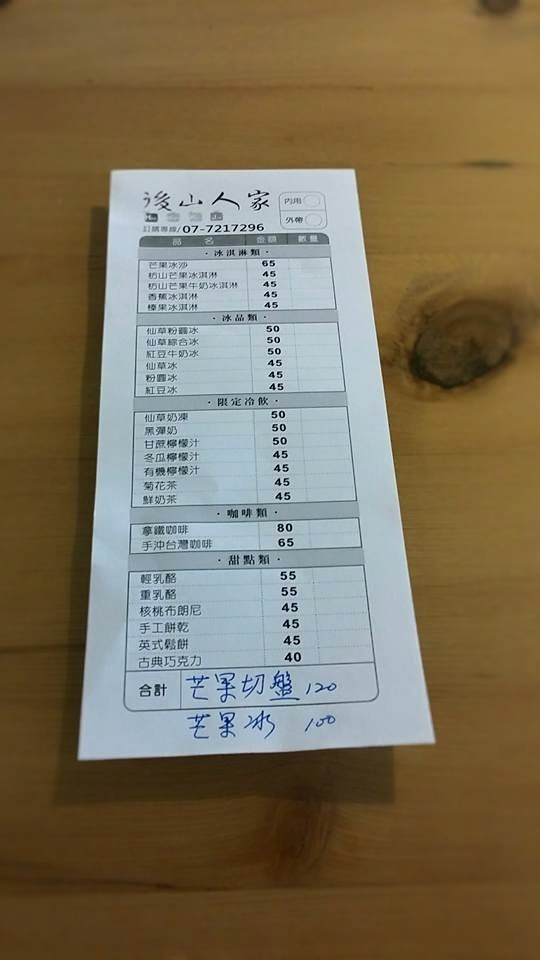 後山人家
內用
外帶
訂購專線/07-7217296
品名 金額 數量
·冰淇淋類·
芒果冰沙 65
枋山芒果冰淇淋 45
枋山芒果牛奶冰淇淋 45
香蕉冰淇淋 45
榛果冰淇淋 45
·冰品類·
仙草粉圓冰 50
仙草綜合冰 50
紅豆牛奶冰 50
仙草冰 45
粉圓冰 45
紅豆冰 45
·限定冷飲·
仙草奶凍 50
黑彈奶 50
甘蔗檸檬汁 50
冬瓜檸檬汁 45
有機檸檬汁 45
菊花茶 45
鮮奶茶 45
·咖啡類·
拿鐵咖啡 80
手沖台灣咖啡 65
·甜點類·
輕乳酪 55
重乳酪 55
核桃布朗尼 45
手工餅乾 45
英式鬆餅 45
古典巧克力 40
合計 芒果切盤 120
芒果冰 100